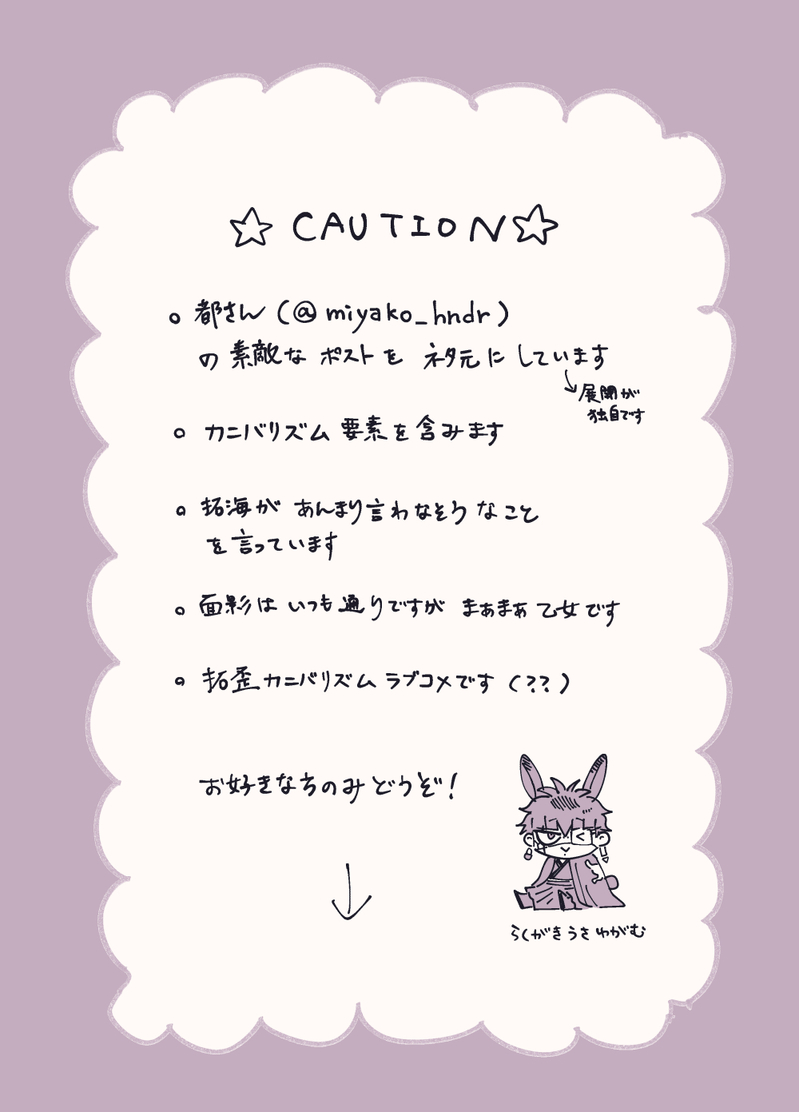 ☆ CAUTION ☆
。都さん (@miyako_hndr)
の素敵な ポストを ネタ元に しています
↳展開が
独自です
。カニバリズム 要素を含みます
。拓海が あんまり言わなそうなこと
を言っています
。面影は いつも通りですが まぁまぁ 乙女です
。拓歪カニバリズム ラブコメです (??)
お好きな方のみ どうぞ!
↓
らくがきうさゆがむ